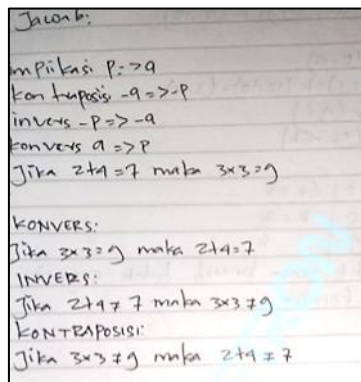 Jawab:
mpiikasi p:>q
kontraposisi -q=>-p
invers -p=>-q
konvers q=>p
Jika 2+4=7 maka 3x3=9
KONVERS:
Jika 3x3=9 maka 2+4=7
INVERS:
Jika 2+4≠7 maka 3x3≠9
KONTRAPOSISI:
Jika 3x3≠9 maka 2+4≠7